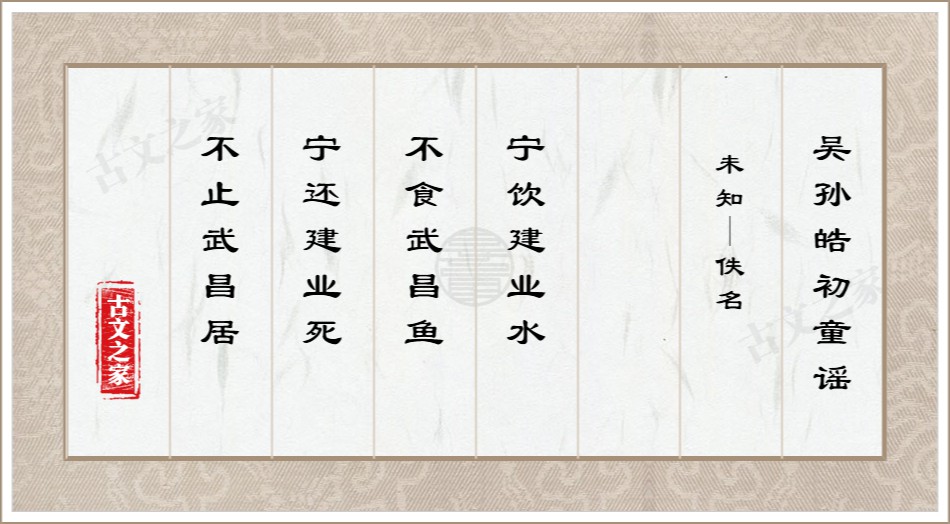 吴孙皓初童谣
未知—佚名
宁饮建业水
不食武昌鱼
宁还建业死
不止武昌居
古文之家
古文之家
古文之家